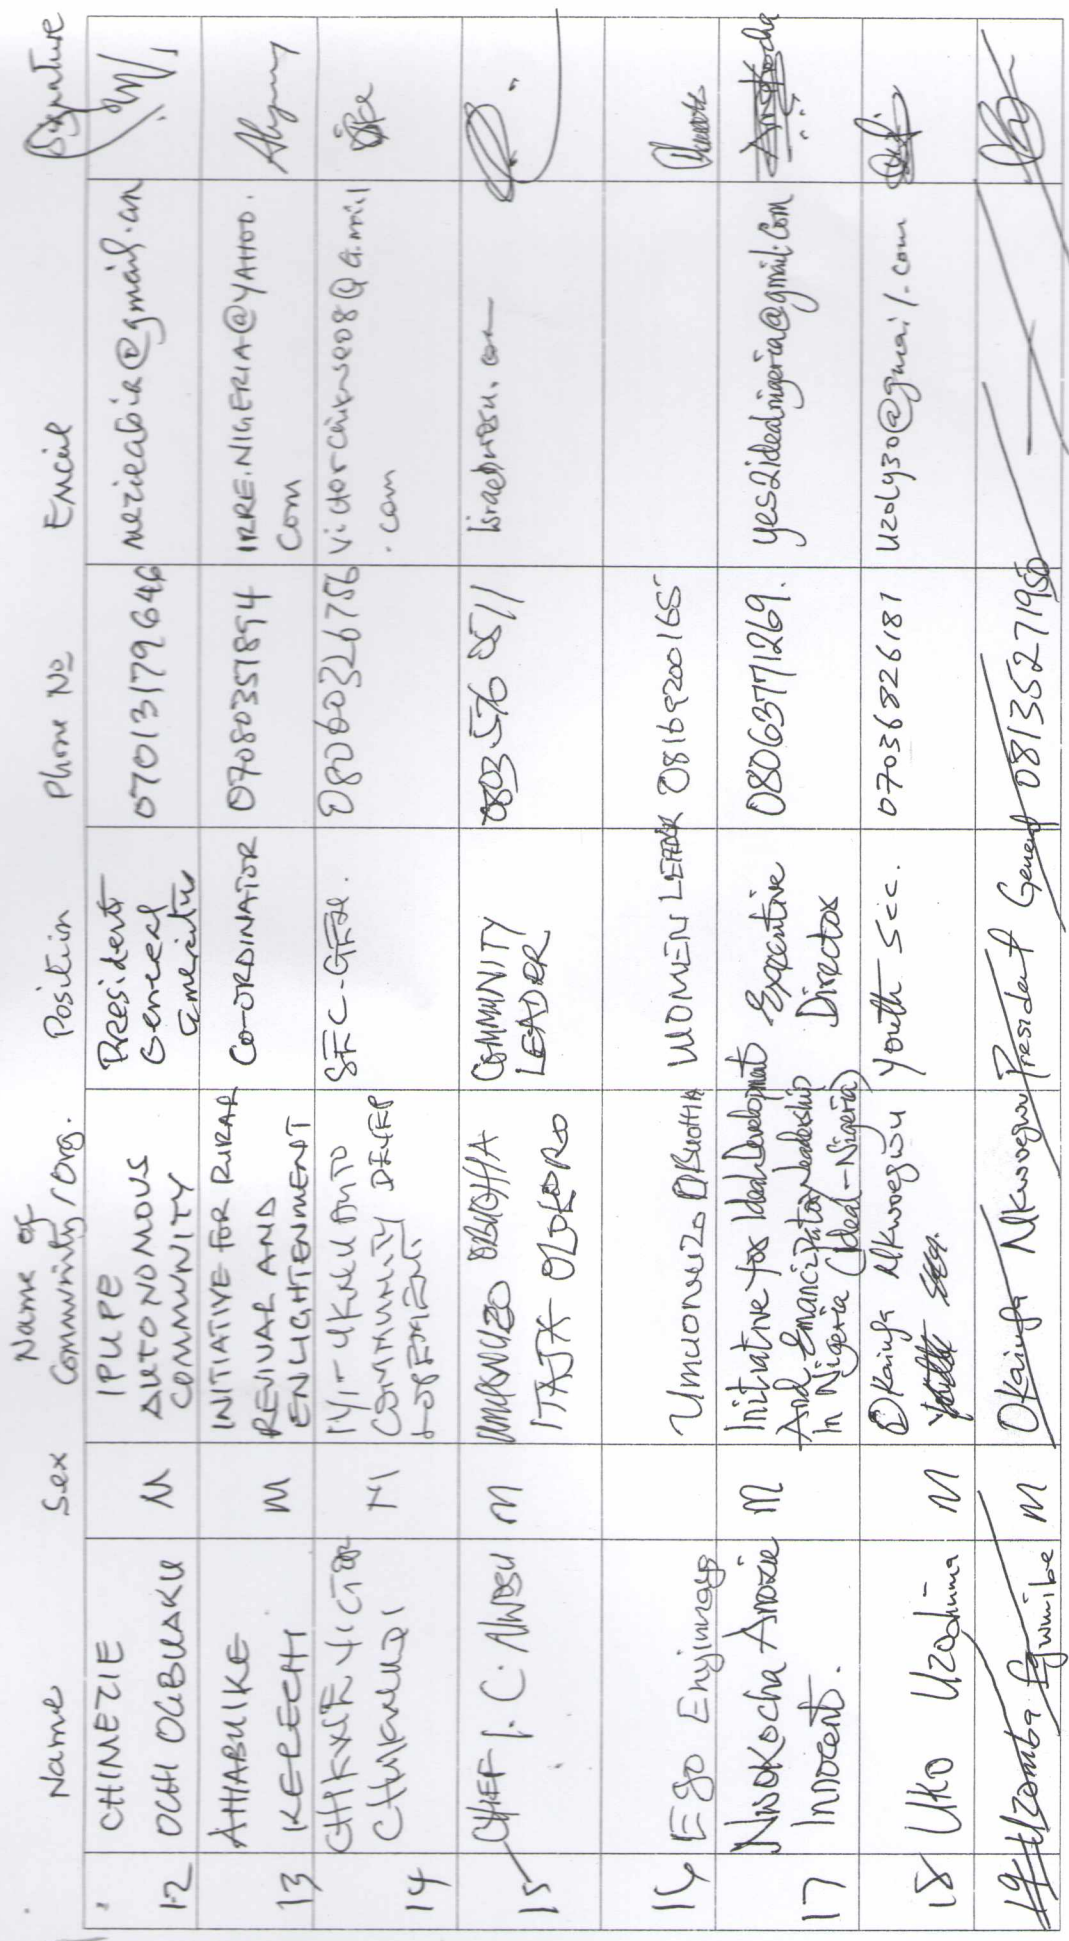 Name Sex Name of Community/Org. Position Phone No Email Signature
12 CHIMEZIE OCHI OGBUAKU M IPUPE AUTONOMOUS COMMUNITY President General Emeritus 07013179646
13 AHIABUIKE KELECHI M INITIATIVE FOR RURAL REVIVAL AND ENLIGHTENMENT CO-ORDINATOR 07080357894 IRRE.NIGERIA@YAHOO.Com
14 M COMMUNITY 08060326756 victorchikwe08@gmail.com
15 CHIEF I. C. NWOSU M OBUOHHA COMMUNITY LEADER
16 Ego Enyinnaya Umuonwuzo OBUOHIA WOMEN LEADER 08169200165
17 Nwokocha Anozie Innocent. M Initiative for Ideal Development And Emancipatory Leadership In Nigeria (Ideal-Nigeria) Executive Director 08063771269. yes2idealnigeria@gmail.Com
18 Uko Uzodinma M Okaiuga Nkwoegwu Youth Sec. 07036826181 uzoly30@gmail.com
19 Uzomba Egwuibe M Okaiuga Nkwoegwu President General